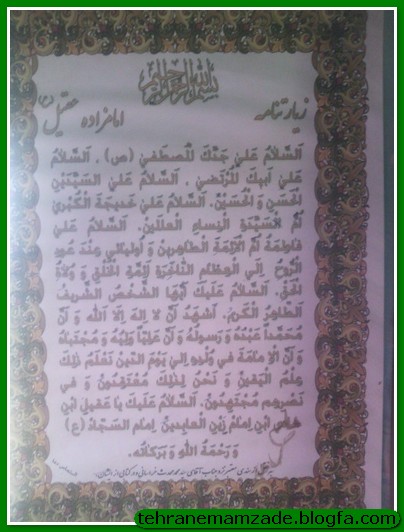 بسم الله الرحمن الرحیم
زیارتنامه امامزاده عقیل (ع)
اَلسَّلامُ عَلی جَدِّکَ الْمُصطَفیٰ (ص) . اَلسَّلامُ
عَلی اَبیکَ الْمُرتَضیٰ . اَلسَّلامُ عَلَی السَّیِّدَینِ
الْحَسَنِ وَ الْحُسَیْنِ. اَلسَّلامُ عَلی خَدیجَةَ الْکُبْریٰ
اُمِّ السَّیِّدَةِ النِساءِ العالَمینَ. اَلسَّلامُ عَلیٰ
فاطِمَةَ اُمِّ الاَئِمَّةِ الطّاهِرینَ وَ عِنْدَ
الرُّوحُ اِلَی العِظامِ النّاخِرَةِ اَئِمَّةِ الخَلْقِ وَ وُلاةِ
الحَقِّ. اَلسَّلامُ عَلَیکَ اَیُّهَا الشَّخْصُ الشَّریفُ
الطّاهِرُ الکَریمُ. اَشْهَدُ اَنْ لا اِلهَ اِلّا اللّه وَ اَنَّ
مُحَمَّداً عَبْدُهُ وَ رَسولُهُ وَ اَنَّ عَلِیّاً وَلِیُّهُ وَ مُجْتَباهُ
وَ اَنَّ الاِمامَةَ فی وُلْدِهِ اِلیٰ یَوْمِ الدّینِ نَعْلَمُ ذلِکَ
عِلْمَ الیَقینِ وَ نَحْنُ لِذلِکَ مُعْتَقِدُونَ وَ فی
نَصْرِهِم مُجْتَهِدُونَ. اَلسَّلامُ عَلَیکَ یا عَقیلَ ابْنِ
ابْنِ اِمامِ زَینِ العابِدینَ اِمامِ السَّجّادِ (ع)
وَ رَحْمَةُ اللّهِ وَ بَرَکاتُهُ.
tehranemamzade.blogfa.com